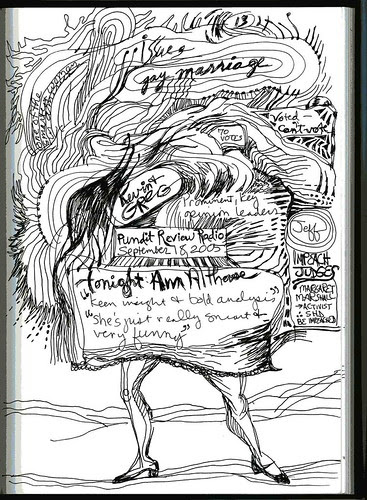 13
issue
gay marriage
Voted
Can't vote
70
VOTES
Kevin &
GREG
Prominent, key
opinion leaders
Jeff
Pundit Review Radio
September 18, 2005
IMPEACH
JUDGES
Tonight: Ann Althouse
"Keen insight & bold analysis"
"She's just really smart &
very funny"
MARGARET
MARSHALL
→ ACTIVIST
∴ SHD
BE IMPEACHED